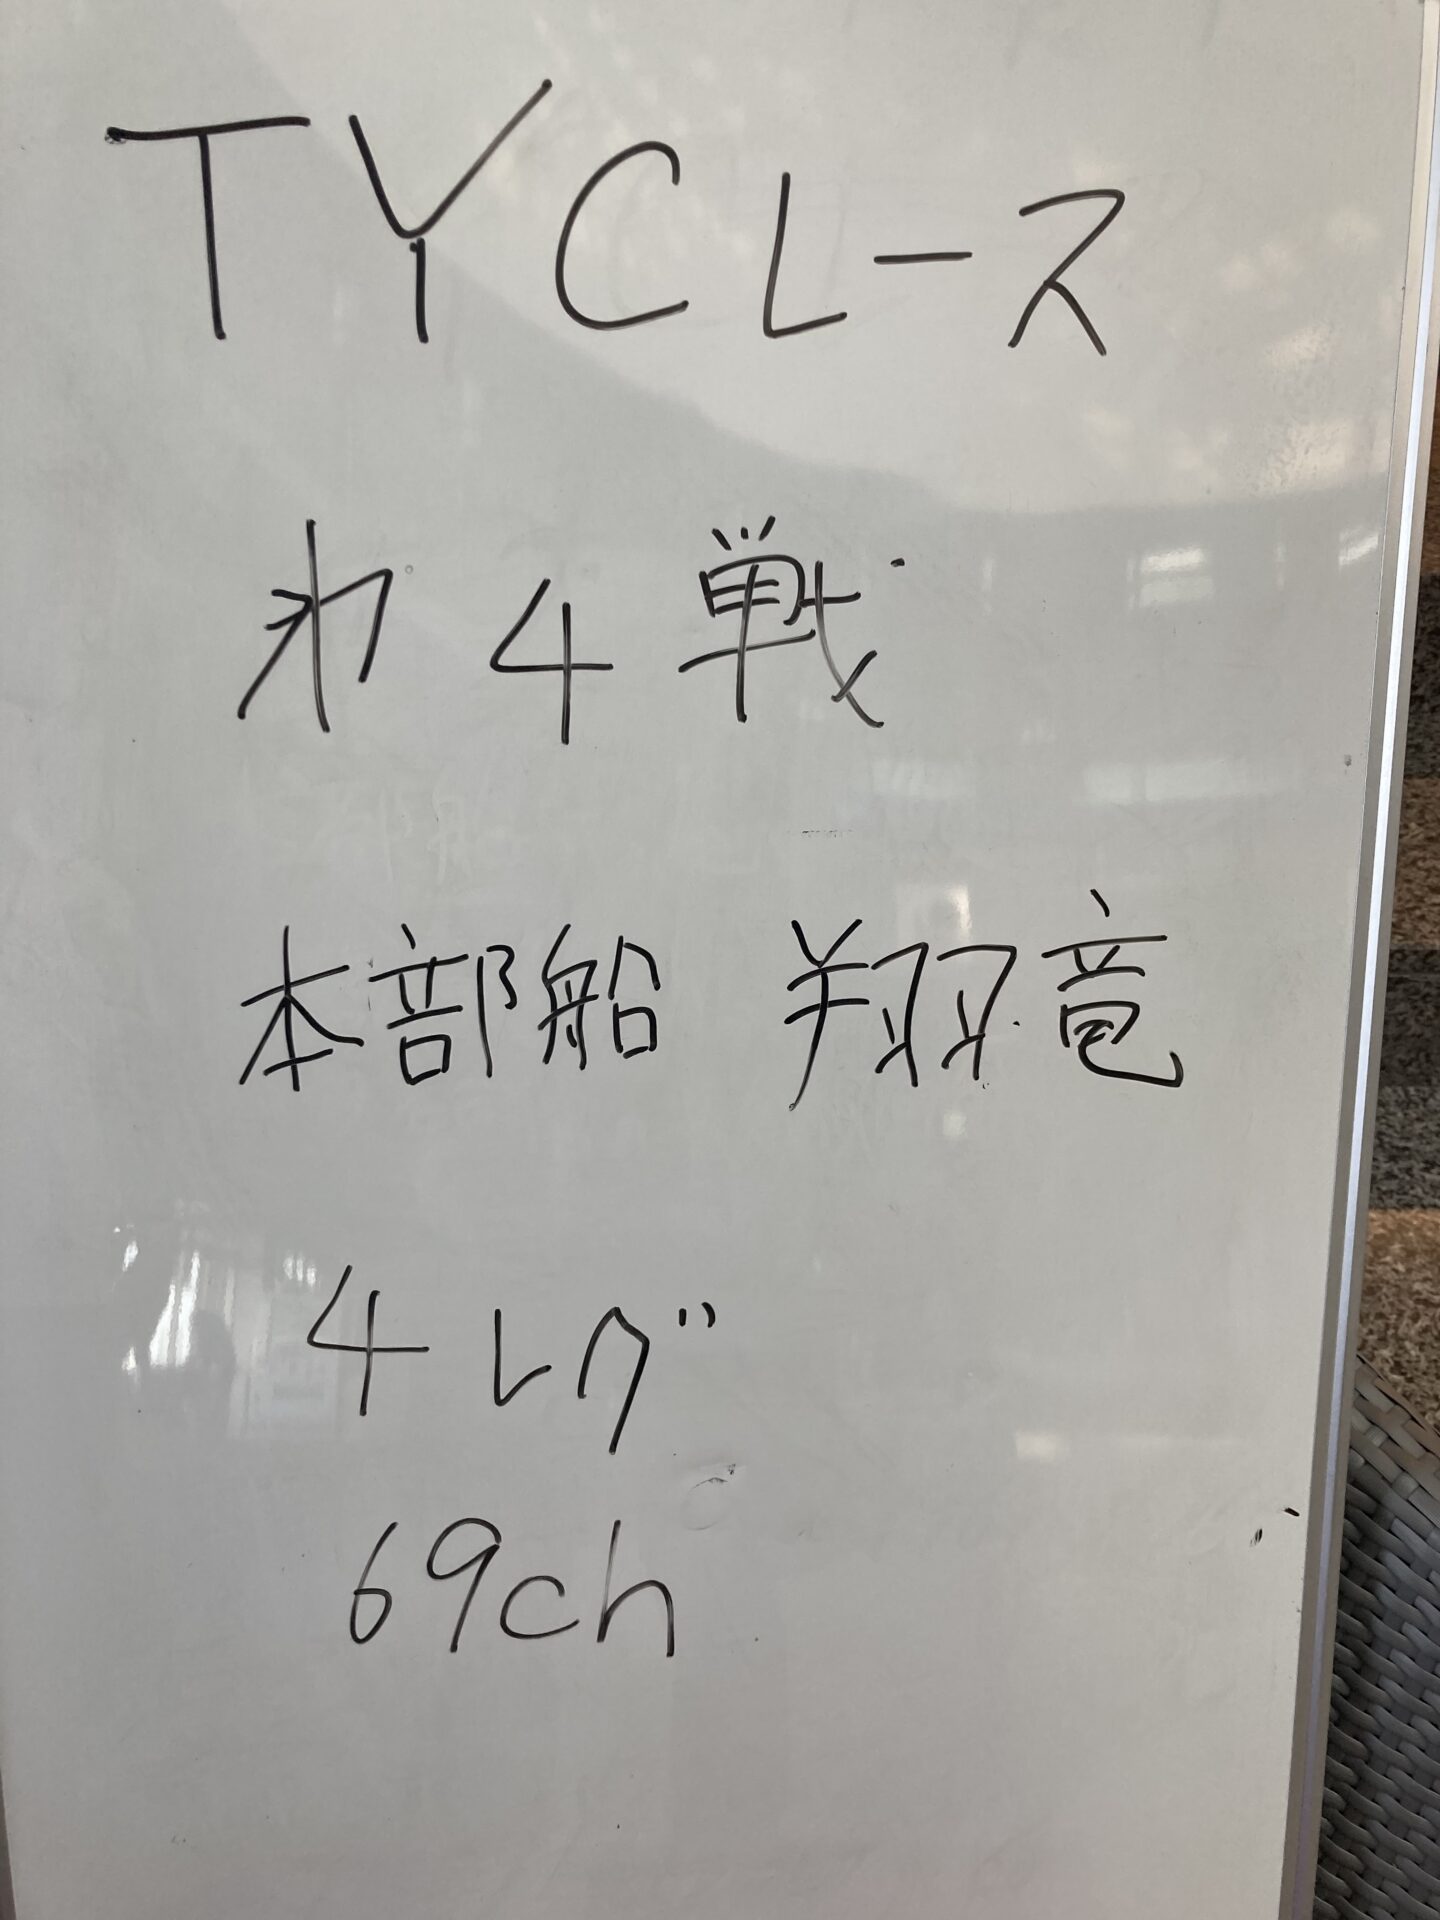 TYCレース
㐧4戦
本部船 翔竜
4レグ
69ch